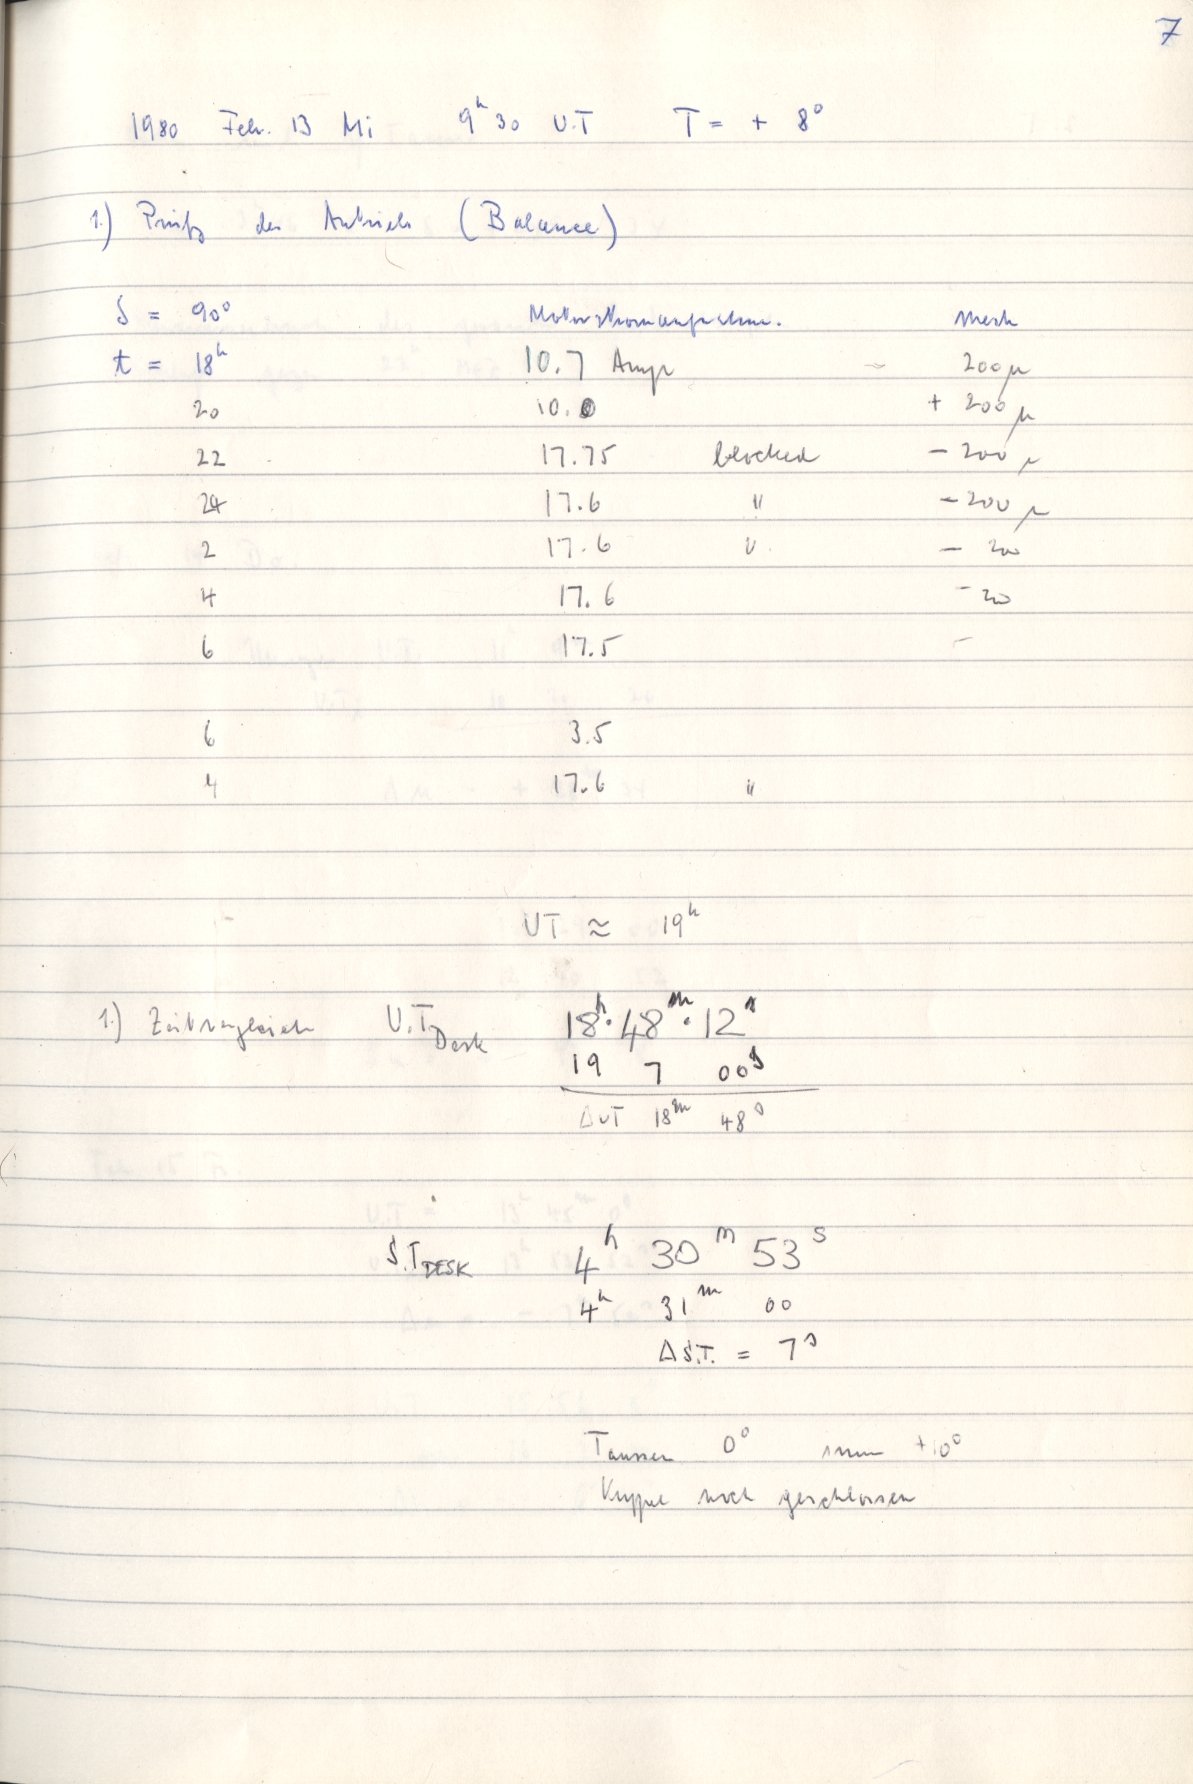 7
1980 Feb. 13 Mi 9h30 U.T T = + 8°
1.) Prüfg des Antriebs (Balance)
δ = 90° Motorstromaufnahme.
t = 18h 10.7 Amp ~ 200μ
20 10.0 + 200μ
22 17.75 blocked - 200μ
24 17.6 " - 200μ
2 17.6 " - 20
4 17.6 - 20
6 17.5 -
6 3.5
4 17.6 "
UT ≈ 19h
1.) Zeitvergleich U.T Desk 18h·48m·12s
19 7 00s
ΔUT 18m 48s
S.T DESK 4h 30m 53s
4h 31m 00
ΔS.T. = 7s
Taussen 0° innen +10°
Kuppel noch geschlossen